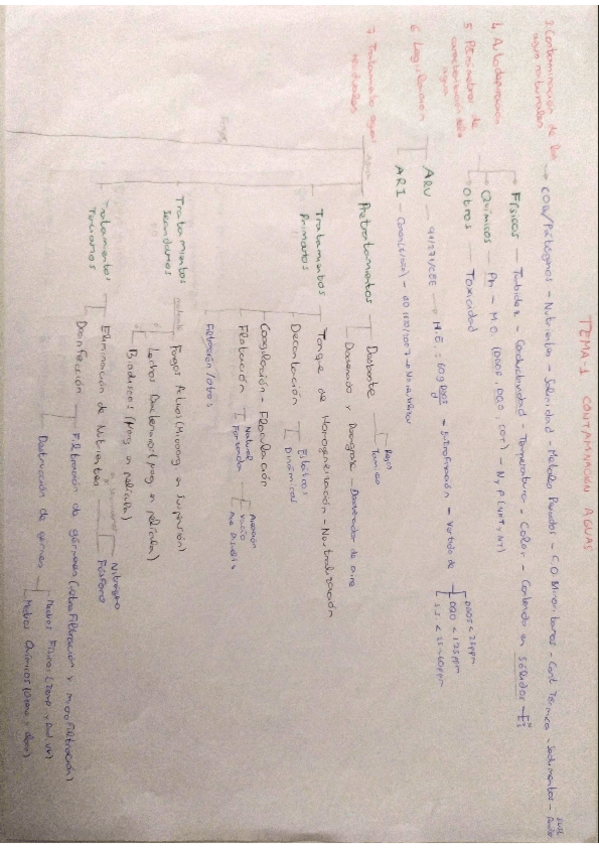 TEMA-1 CONTAMINACIÓN AGUAS
3. Contaminación de las aguas naturales → COV/Patógenos - Nutrientes - Salinidad - Metales Pesados - C.O. Minoritarios - Cont. Térmica - Sedimentos -
4. Autodepuración
5. Parámetros de caracterización del agua
Físicos - Turbidez - Conductividad - Temperatura - Color - Contenido en sólidos
Químicos - Ph - M.O. (DBO5, DQO, COT) - N y P (NKT y NT)
Otros - Toxicidad
6. Legislación
ARU - 91/271/CEE - H.E. = 60g DBO5 - Eutrofización - Vertido de
DBO5 < 25ppm
DQO < 125ppm
S.S. < 35-60ppm
ARI
7. Tratamiento aguas residuales
Pretratamientos
Desbaste
Rejas
Tamices
Desarenado y Desengrase - Desarenador de aire
Tratamientos Primarios
Tanque de Homogeneización - Neutralización
Decantación
Estáticos
Dinámicos
Coagulación - Floculación
Flotación
Natural
Forzada
Aireación
Vacío
Aire Disuelto
Filtración/otros
Tratamientos Secundarios
Fangos Activos (Microorg. en suspensión)
Lechos Bacterianos (Morg en película)
Biodiscos (Morg en película)
Tratamientos Terciarios
Eliminación de Nutrientes
Nitrógeno
Fósforo
Desinfección
Filtración de gérmenes (ultrafiltración y microfiltración)
Destrucción de gérmenes
Medios Físicos (Temp y Rad. UV)
Medios Químicos (Ozono y Cloro)